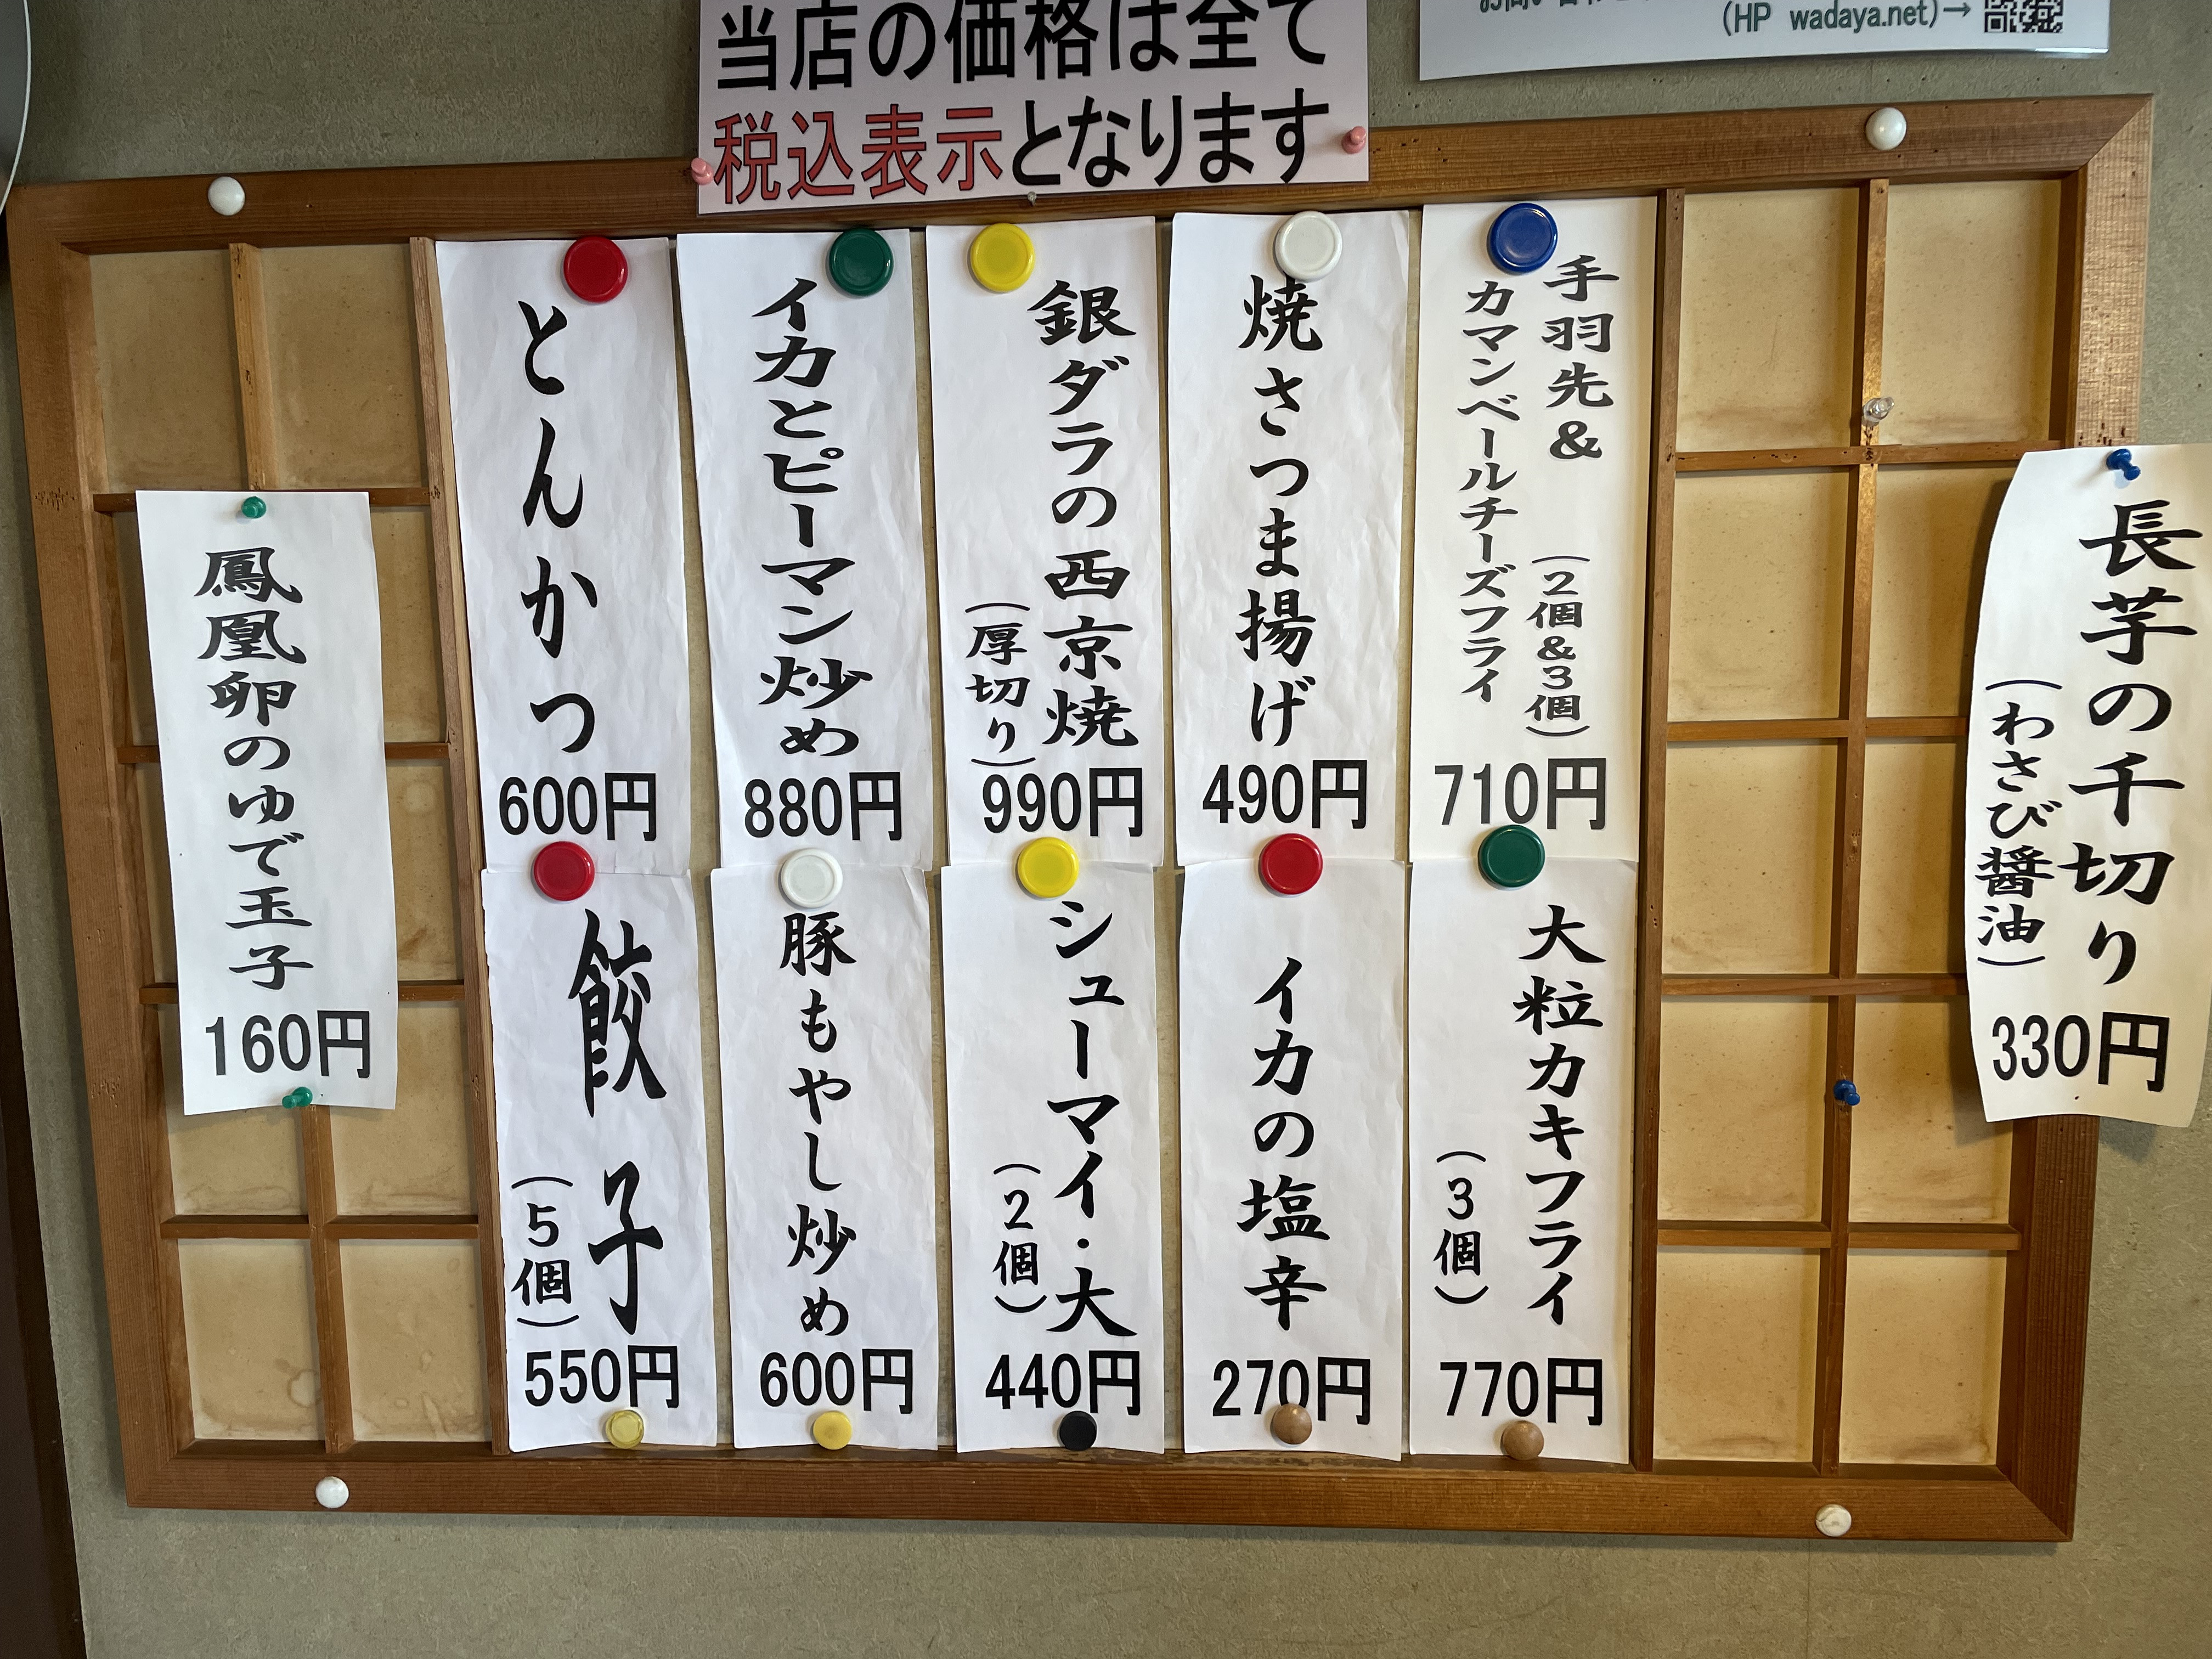 当店の価格は全て
税込表示となります
(HP wadaya.net)→
長芋の千切り
(わさび醤油)
330円
手羽先&
(2個&3個)
カマンベールチーズフライ
710円
焼さつま揚げ
490円
銀ダラの西京焼
(厚切り)
990円
イカとピーマン炒め
880円
とんかつ
600円
大粒カキフライ
(3個)
770円
イカの塩辛
270円
シューマイ・大
(2個)
440円
豚もやし炒め
600円
餃子
(5個)
550円
鳳凰卵のゆで玉子
160円